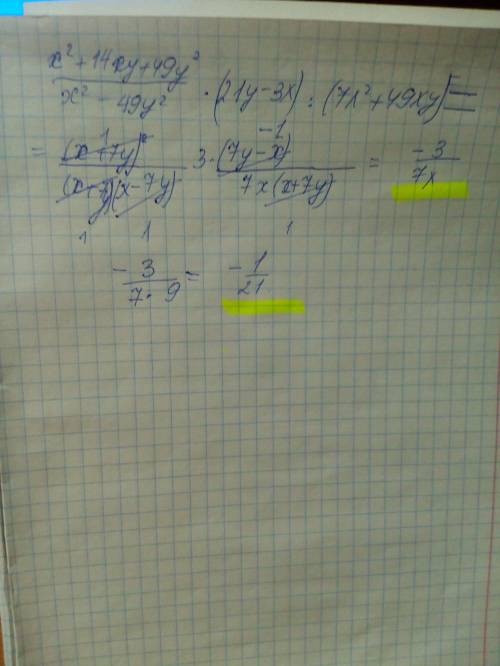 x² + 14xy + 49y²
x² - 49y² · (21y - 3x) : (7x² + 49xy) =
1 -1
= (x+7y)² 3·(7y-x) = -3
(x+7y)(x-7y) 7x(x+7y) 7x
1 1 1
- 3 = - 1
7·9 21